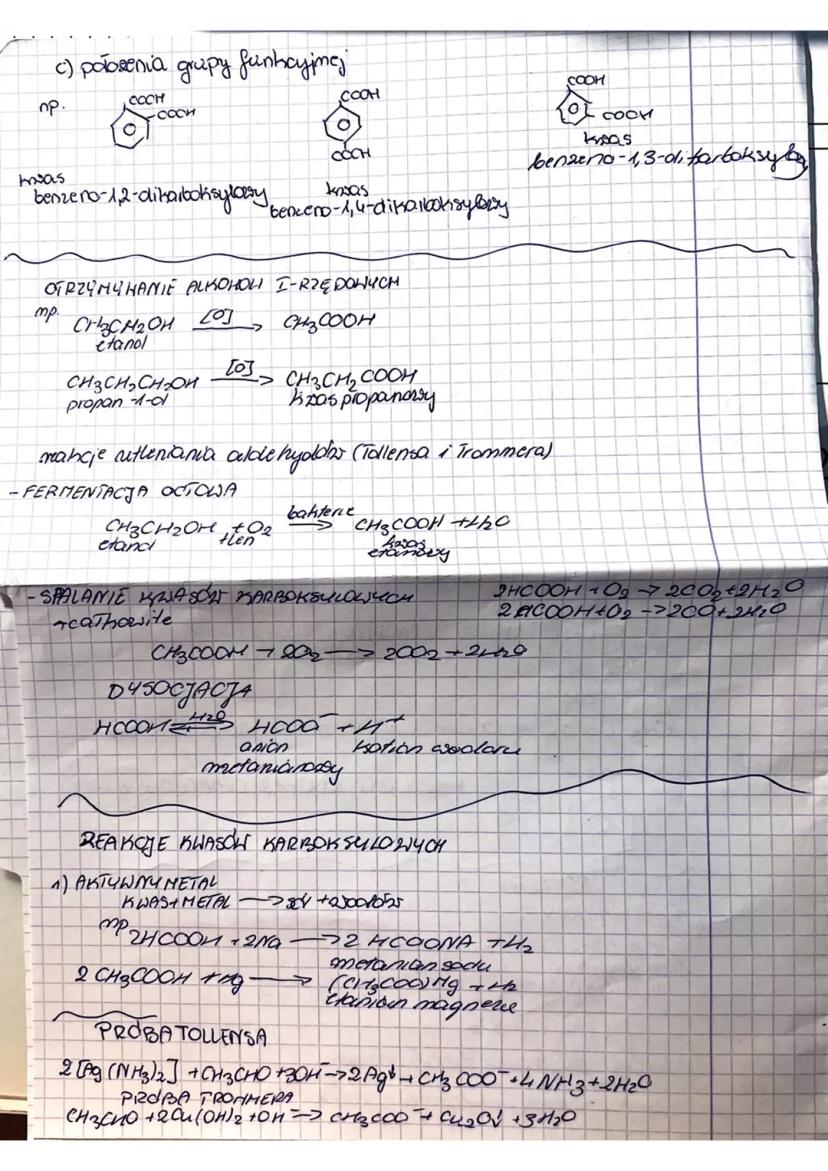 c) położenia grupy funkcyjnej
np. COOH COOH COOH COOH COOH COOH
kwas benzeno-1,2-dikarboksylowy
kwas benzeno-1,4-dikarboksylowy
kwas benzeno-1,3-dikarboksylowy
OTRZYMYWANIE ALKOHOLI I-RZĘDOWYCH
np. CH3CH2OH [O] → CH3COOH
etanol
CH3CH2CH2OH [O] → CH3CH2COOH
propan-1-ol kwas propanowy
reakcje utleniania aldehydów (Tollensa i Trommera)
- FERMENTACJA OCTOWA
CH3CH2OH + O2 bakterie → CH3COOH + H2O
etanol tlen kwas etanowy
- SPALANIE KWASÓW KARBOKSYLOWYCH 2HCOOH + O2 → 2CO2 + 2H2O
→ całkowite 2HCOOH + O2 → 2CO + 2H2O
CH3COOH + 2O2 → 2CO2 + 2H2O
DYSOCJACJA
HCOOH ⇌ H2O HCOO⁻ + H⁺
anion kation wodoru
metanianowy
REAKCJE KWASÓW KARBOKSYLOWYCH
1) AKTYWNY METAL
KWAS + METAL → sól + wodór
np 2HCOOH + 2Na → 2 HCOONA + H2
metanian sodu
2 CH3COOH + Mg → (CH3COO)Mg + H2
etanian magnezu
PRÓBA TOLLENSA
2[Ag(NH3)2] + CH3CHO + 3OH⁻ → 2Ag↓ + CH3COO⁻ + 4NH3 + 2H2O
PRÓBA TROMMERA
CH3CHO + 2Cu(OH)2 + OH⁻ → CH3COO⁻ + Cu2O↓ + 3H2O